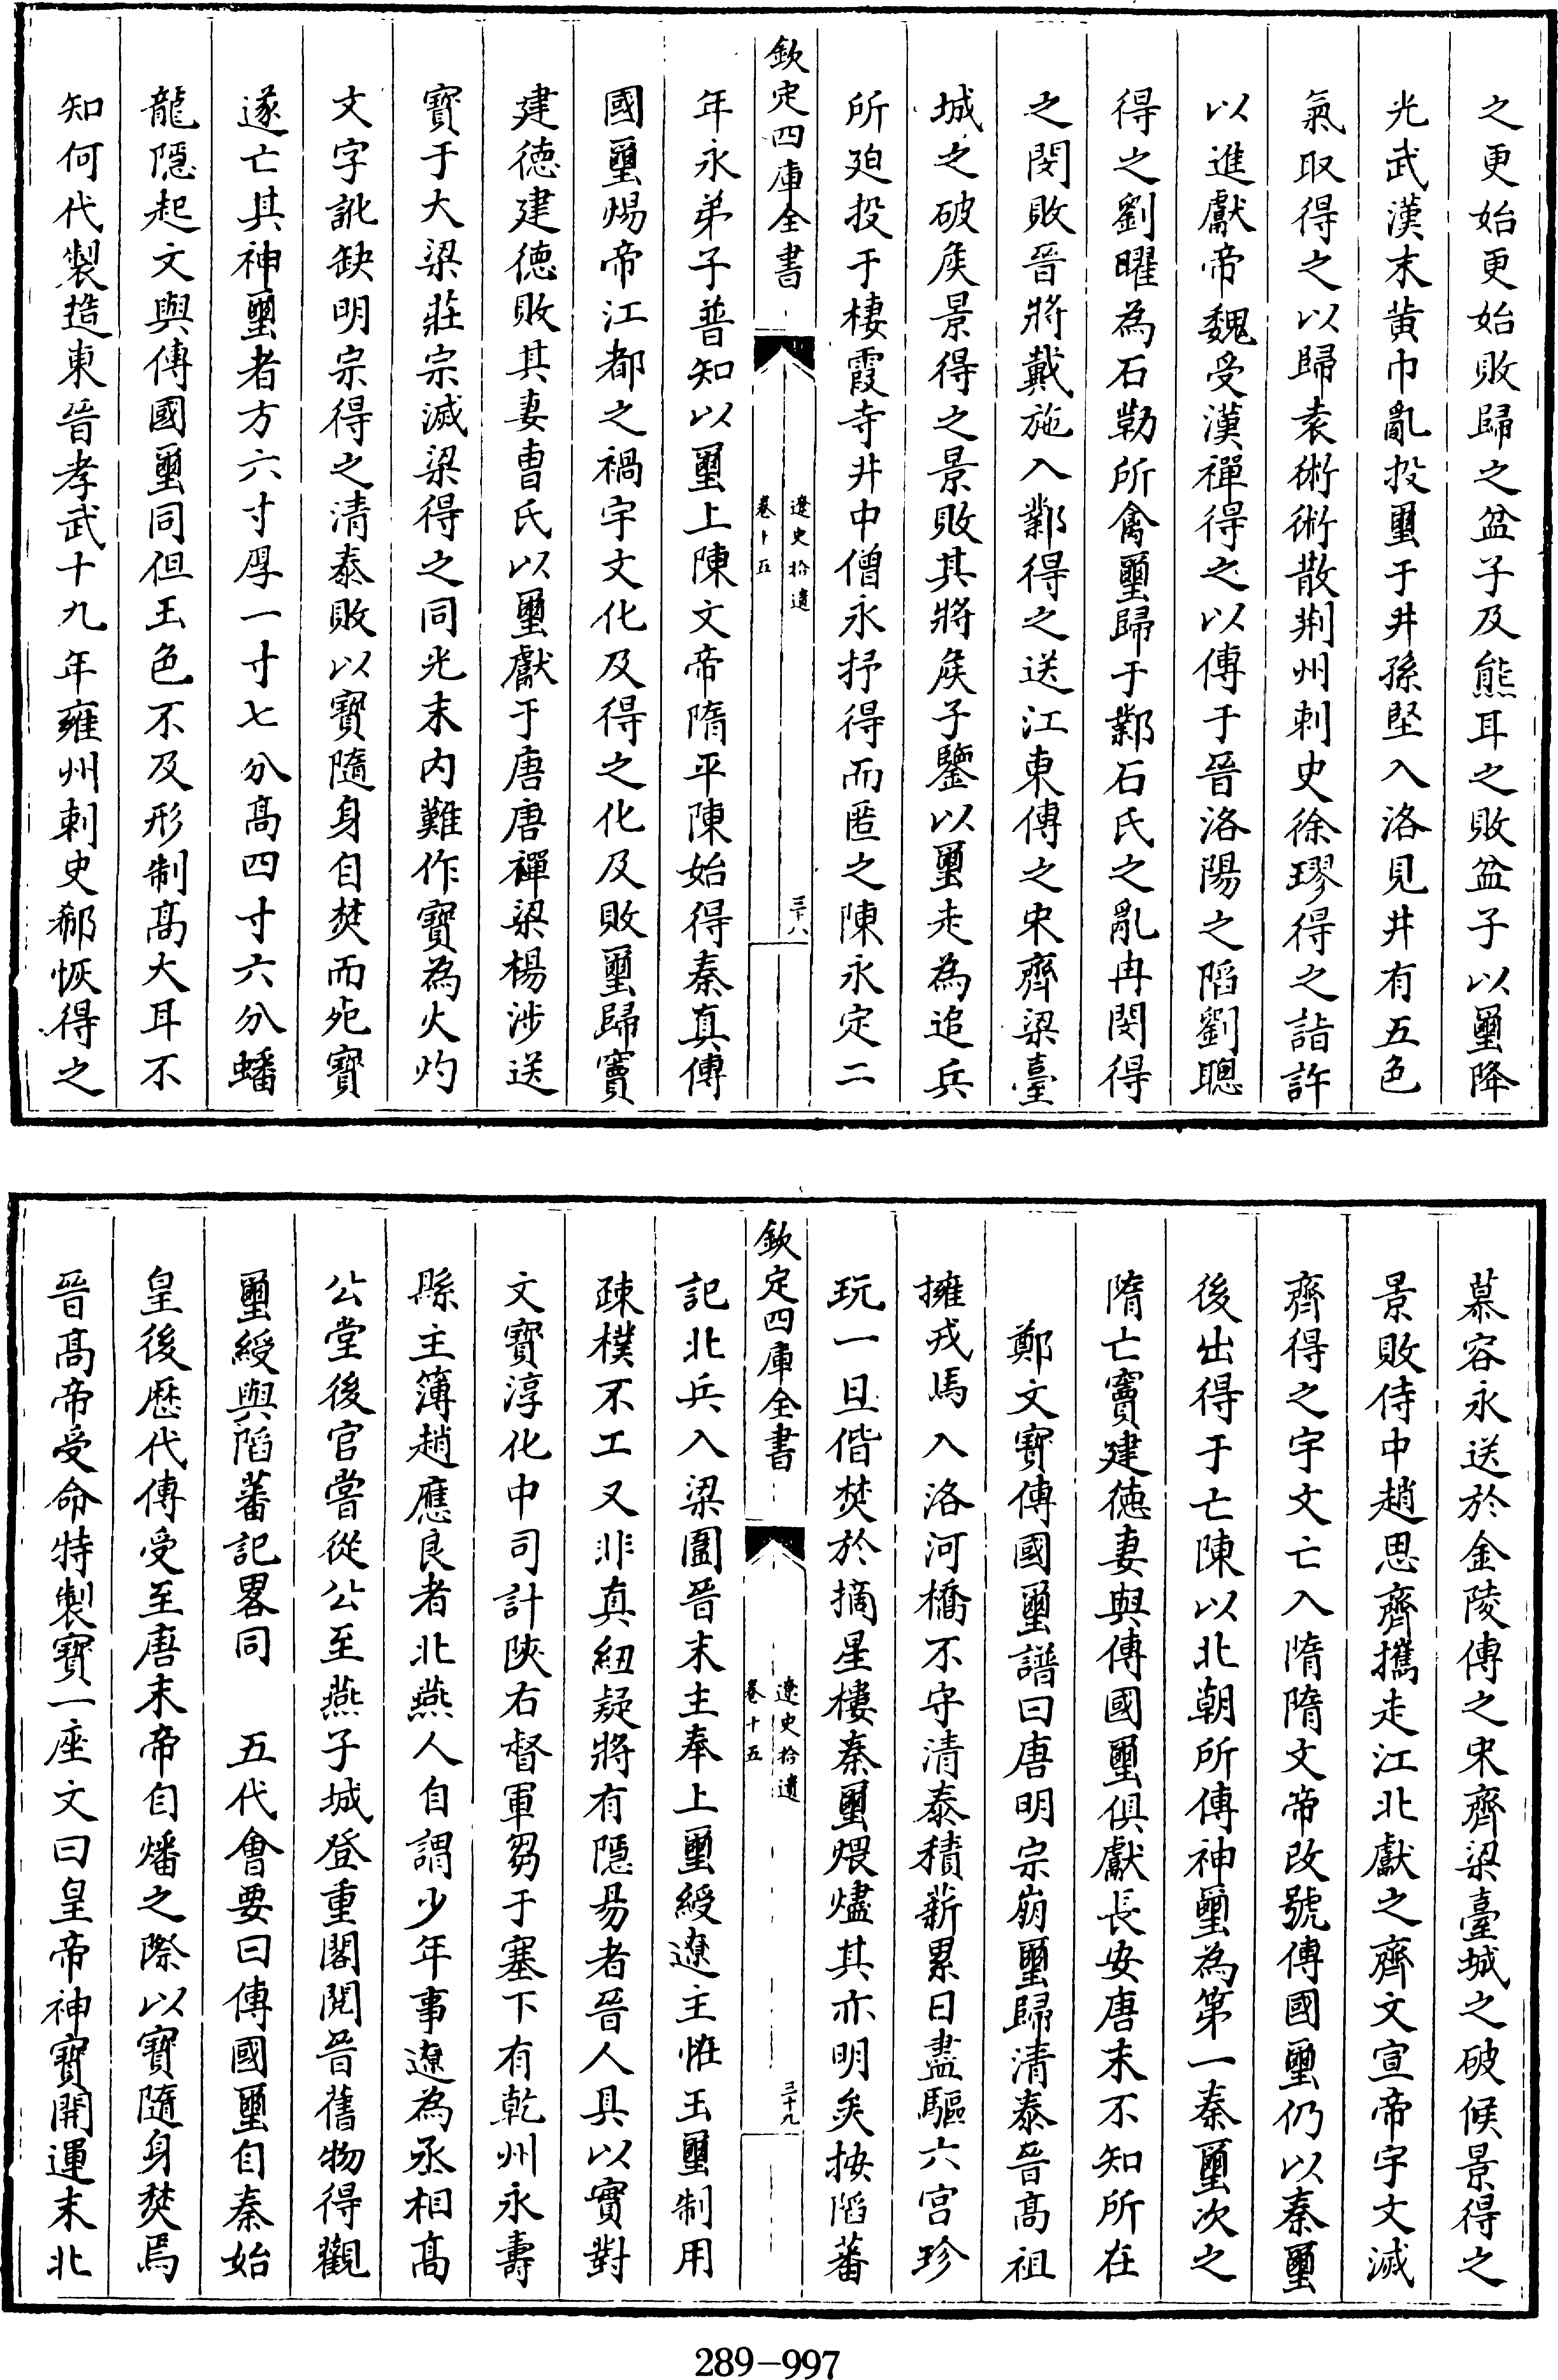 之更始更始敗歸之盆子及熊耳之敗盆子以璽降
光武漢末黄巾亂投璽于井孫堅入洛見井有五色
氣取得之以歸袁術術散荆州刺史徐璆得之詣許
以進獻帝魏受漢禪得之以傳于晉洛陽之陷劉聰
得之劉曜為石勒所禽璽歸于鄴石氏之亂冉閔得
之閔敗晉將戴施入鄴得之送江東傳之宋齊梁臺
城之破侯景得之景敗其將侯子鑒以璽走為追兵
所廹投于棲霞寺井中僧永抒得而匿之陳永定二
欽定四庫全書
遼史拾遺
卷十五
三十八
年永弟子普知以璽上陳文帝隋平陳始得秦真傳
國璽煬帝江都之禍宇文化及得之化及敗璽歸竇
建德建德敗其妻曹氏以璽獻于唐唐禪梁楊涉送
寶于大梁莊宗滅梁得之同光末内難作寶為火灼
文字訛缺明宗得之清泰敗以寶隨身自焚而死寶
遂亡其神璽者方六寸厚一寸七分高四寸六分蟠
龍隠起文與傳國璽同但玉色不及形制高大耳不
知何代製造東晉孝武十九年雍州刺史郗恢得之
慕容永送於金陵傳之宋齊梁臺城之破候景得之
景敗侍中趙思齊攜走江北獻之齊文宣帝宇文滅
齊得之宇文亡入隋隋文帝改號傳國璽仍以秦璽
後出得于亡陳以北朝所傳神璽為第一秦璽次之
隋亡竇建德妻與傳國璽俱獻長安唐末不知所在
鄭文寶傳國璽譜曰唐明宗崩璽歸清泰晉高祖
擁戎馬入洛河橋不守清泰積薪累日盡驅六宫珍
玩一旦偕焚於摘星樓秦璽煨燼其亦明矣按陷蕃
欽定四庫全書
遼史拾遺
卷十五
三十九
記北兵入梁園晉末主奉上璽綬遼主恠玉璽制用
疎樸不工又非真紐疑將有隠易者晉人具以實對
文寶淳化中司計陜右督軍芻于塞下有乾州永壽
縣主簿趙應良者北燕人自謂少年事遼為丞相高
公堂後官嘗從公至燕子城登重閣閲晉舊物得觀
璽綬與陷蕃記畧同　五代會要曰傳國璽自秦始
皇後歴代傳受至唐末帝自燔之際以寶隨身焚焉
晉高帝受命特製寶一座文曰皇帝神寶開運末北
289-997